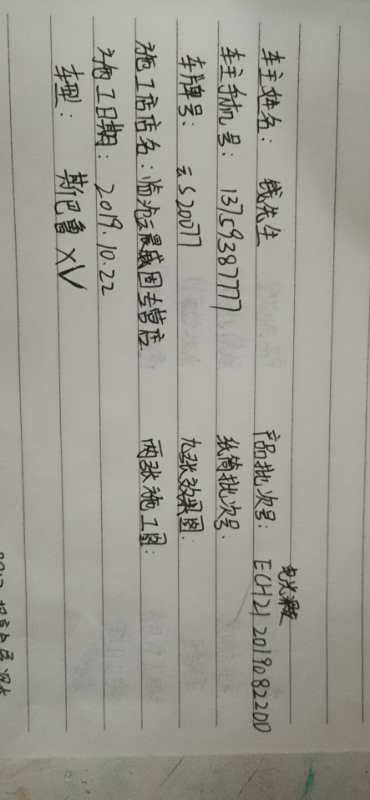 车主姓名： 钱先生 产品批次号： ECH212019082200
车主手机号： 13759387777 纸筒批次号：
车牌号： 云S20077 九张效果图：
施工店店名：临沧云晨威固专营店 两张施工图：
施工日期： 2019.10.22
车型： 斯巴鲁XV